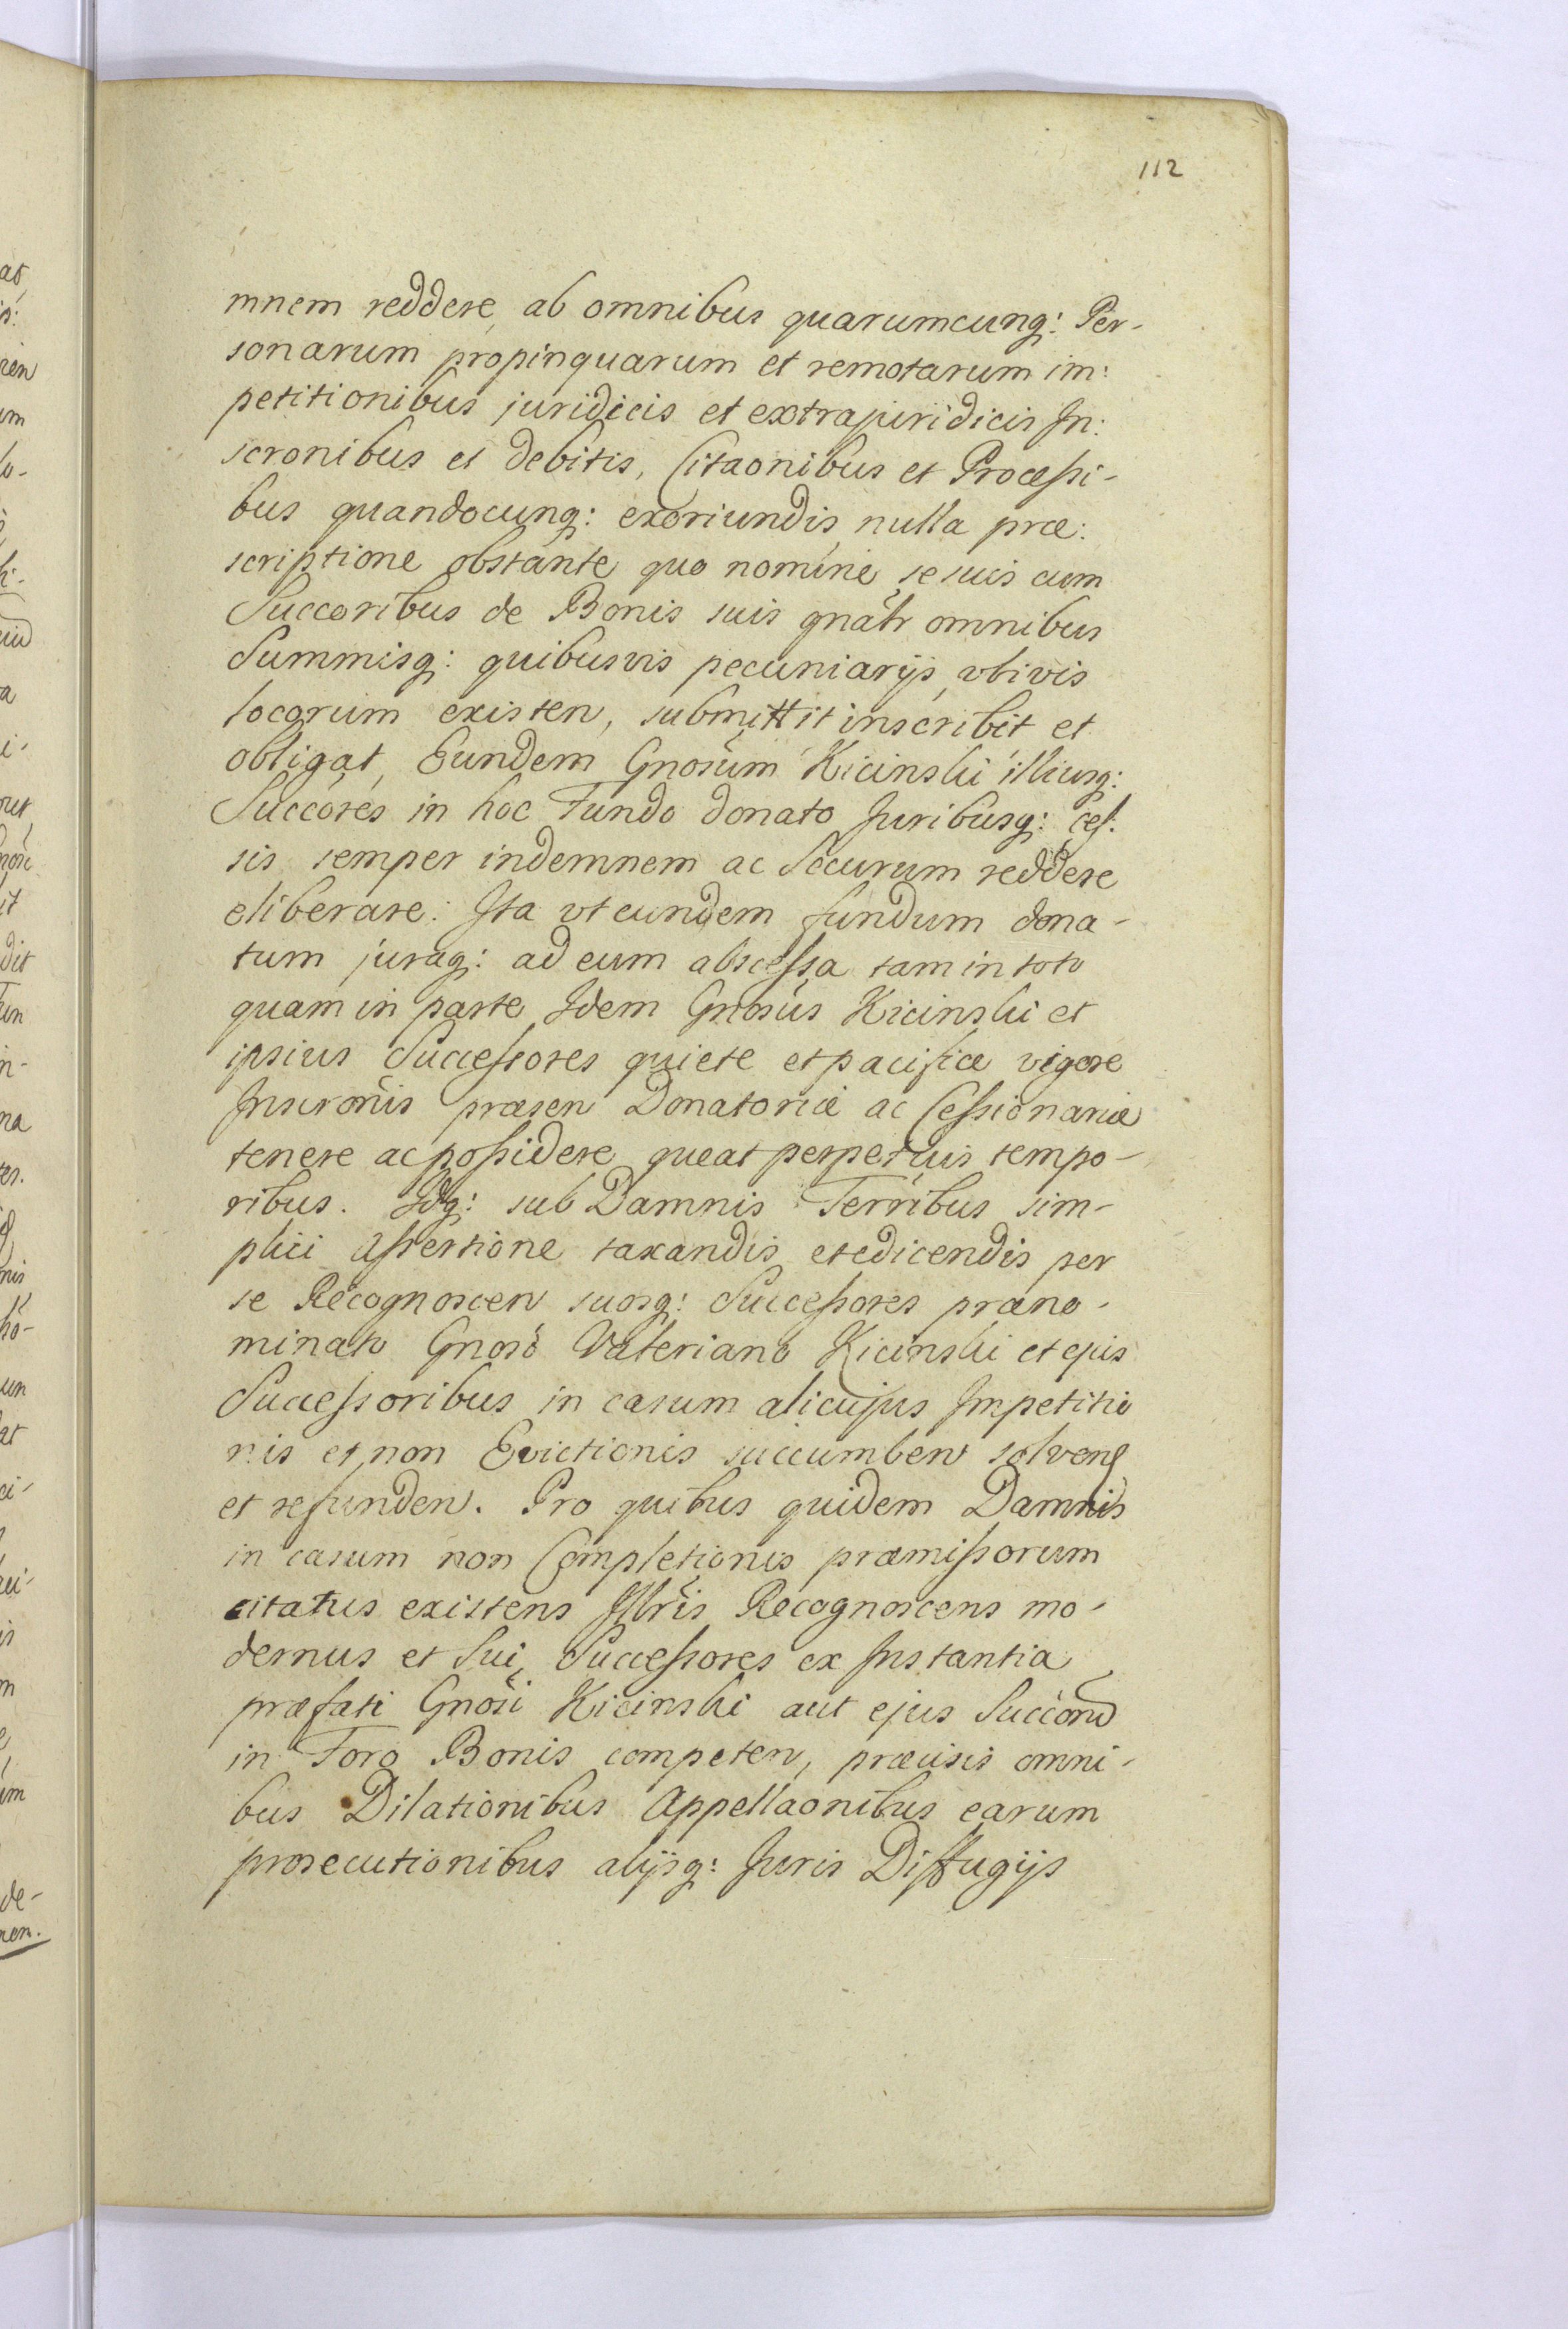 112
mnem reddere, ab omnibus quarumcunq: Per-
sonarum propinquarum et remotarum im:
petitionibus juridicis et extrajuridicis In:
scronibus et debitis, Citaonibus et Processi-
bus quandocunq: exoriundis, nulla præ:
scriptione obstante, quo nomine, se suis cum
Succoribus de Bonis suis gnatr omnibus
Summisq: quibusvis pecuniarijs, vbivis
locorum existen, submittit inscribit et
obligat, Eundem Gnosum Kicinski illiusq:
Succores in hoc Fundo donato Juribusq: ces:
sis semper indemnem ac Securum reddere
eliberare: Ita vt eundem fundum dona-
tum juraq: ad eum abscessa tam in toto
quam in parte, Idem Gnosus Kicinski et
ipsius Successores quiete et pacifice vigore
Inscronis præsen Donatoriæ ac Cessionariæ
tenere ac possidere queat perpetuis tempo-
ribus. Idq: sub Damnis Terribus sim-
plici assertione taxandis et edicendis per
se Recognoscen suosq: Successores præno-
minato Gnoso Valeriano Kicinski et ejus
Successoribus in casum alicujus Impetitio
nis et non Evictionis succumben solven
et refunden. Pro quibus quidem Damnis
in casum non Completionis præmissorum
citatus existens Illris Recognoscens mo-
dernus et Sui Successores ex Instantia
præfati Gnosi Kicinski aut ejus Succorū
in Foro Bonis competen, præcisis omni-
bus Dilationibus Appellaonibus earum
prosecutionibus alijsq: Juris Diffugijs